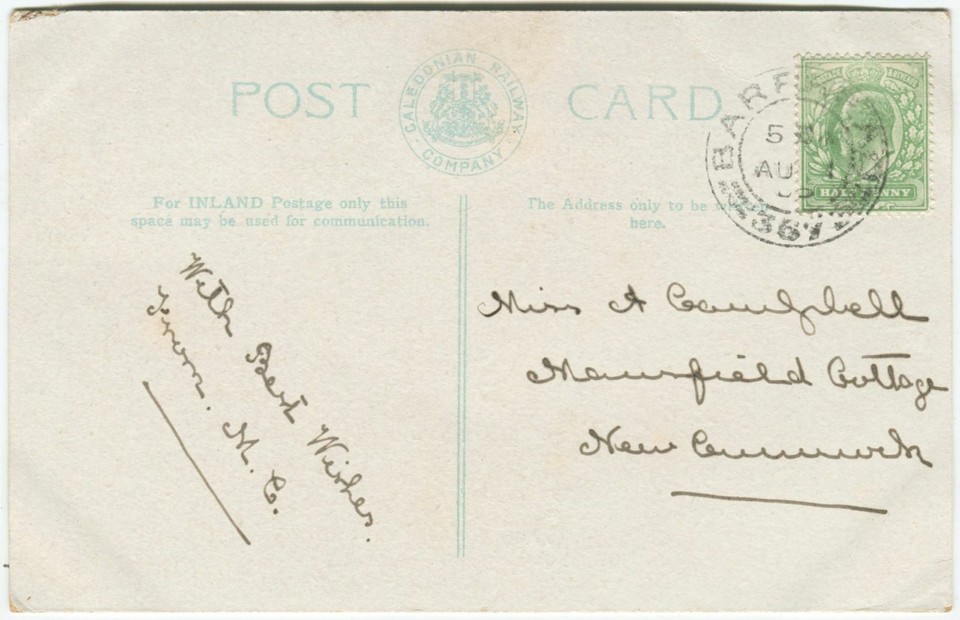 POST CARD
CALEDONIAN RAILWAY
COMPANY
For INLAND Postage only this
space may be used for communication.
The Address only to be
here.
HALFPENNY
367
With Best Wishes.
From. M. C.
Miss A Campbell
Mansfield Cottage
New Cumnock